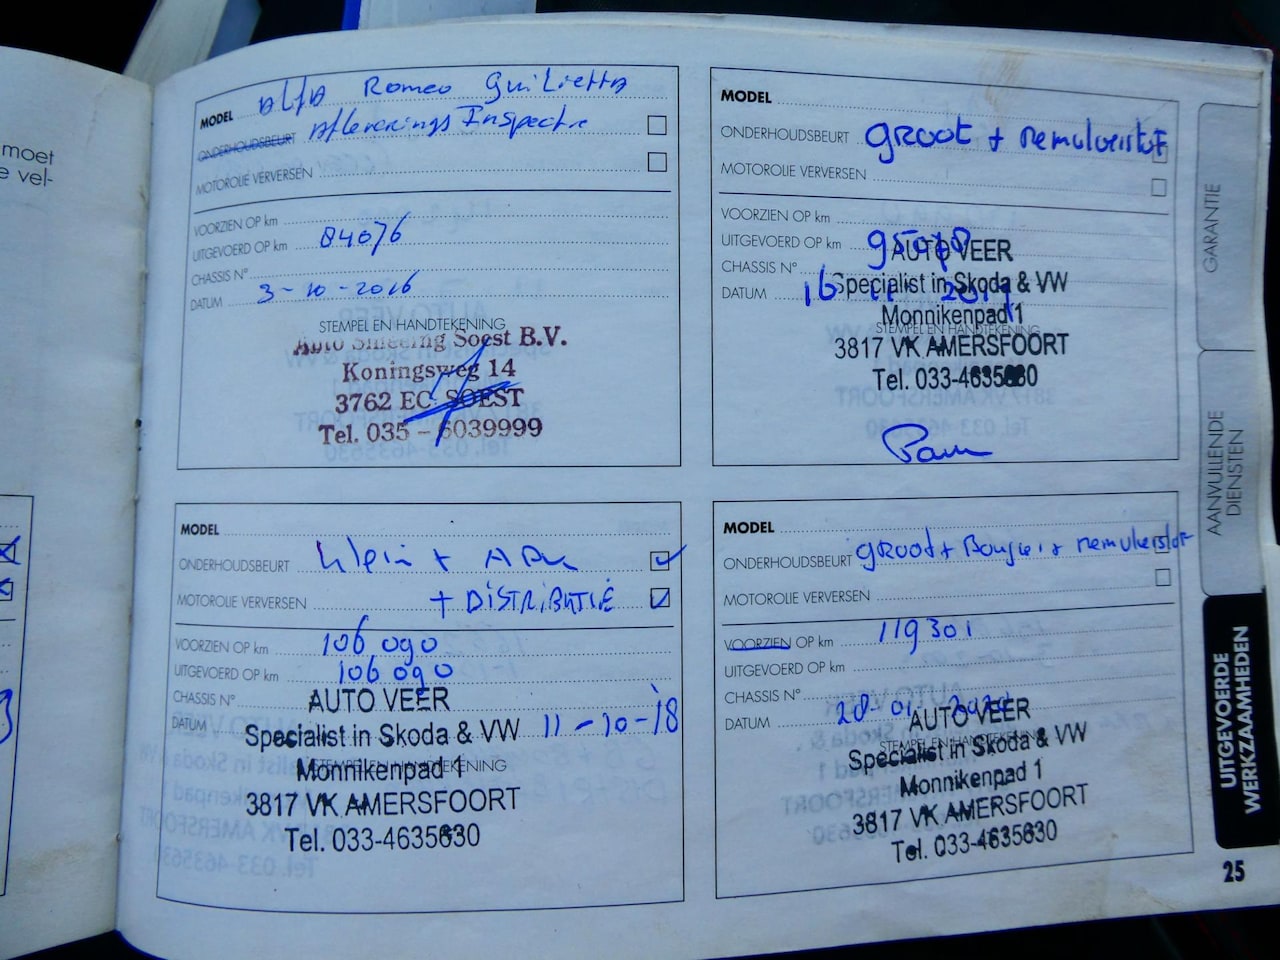 moet
e vel-
MODEL Alfa Romeo Guilietta
ONDERHOUDSBEURT Afleverings Inspectie
MOTOROLIE VERVERSEN
VOORZIEN OP km
UITGEVOERD OP km 84076
CHASSIS N°
DATUM 3-10-2016
STEMPEL EN HANDTEKENING
Soest B.V.
Koningsweg 14
3762 EC SOEST
Tel. 035 - 6039999
MODEL
ONDERHOUDSBEURT groot + remvloeistof
MOTOROLIE VERVERSEN
VOORZIEN OP km
UITGEVOERD OP km
CHASSIS N°
DATUM 16
AUTO VEER
Specialist in Skoda & VW
Monnikenpad 1
STEMPEL EN HANDTEKENING
3817 VK AMERSFOORT
Tel. 033-4635630
MODEL
ONDERHOUDSBEURT klein +
MOTOROLIE VERVERSEN + DISTRIBUTIE
VOORZIEN OP km 106 090
UITGEVOERD OP km 106 090
CHASSIS N°
DATUM 11-10-'18
AUTO VEER
Specialist in Skoda & VW
STEMPEL EN HANDTEKENING
Monnikenpad 1
3817 VK AMERSFOORT
Tel. 033-4635630
MODEL
ONDERHOUDSBEURT groot + Bougies + remvloeistof
MOTOROLIE VERVERSEN
VOORZIEN OP km 119301
UITGEVOERD OP km
CHASSIS N°
DATUM 28-01-2020
AUTO VEER
STEMPEL EN HANDTEKENING
Specialist in Skoda & VW
Monnikenpad 1
3817 VK AMERSFOORT
Tel. 033-4635630
GARANTIE
AANVULLENDE
DIENSTEN
UITGEVOERDE
WERKZAAMHEDEN
25